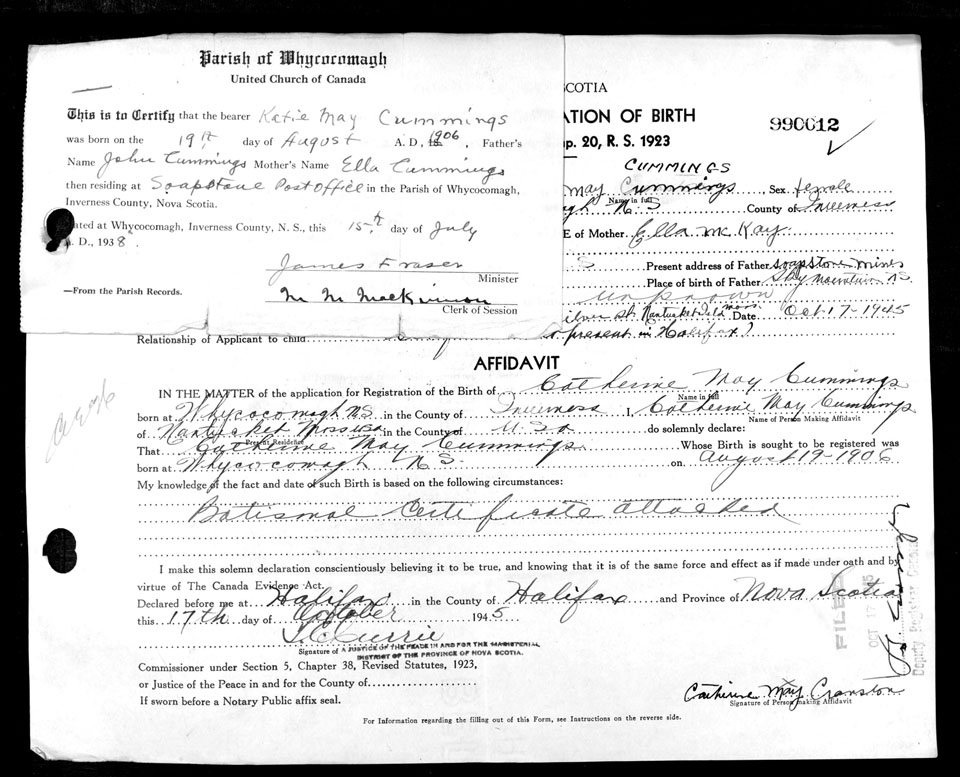 Parish of Whycocomagh
United Church of Canada
This is to Certify that the bearer Katie May Cummings
was born on the 19th day of August A. D., 1906, Father's
Name John Cummings Mother's Name Ella Cummings
then residing at Soapstone Post Office in the Parish of Whycocomagh,
Inverness County, Nova Scotia.
Dated at Whycocomagh, Inverness County, N. S., this 15th day of July
A. D., 1938.
James Fraser
Minister
—From the Parish Records.
M M MacKinnon
Clerk of Session
SCOTIA
ATION OF BIRTH
990012
ap. 20, R. S. 1923
CUMMINGS
May Cummings Sex female
Name in full
gh N. S County of Inverness
E of Mother Ella McKay
S Present address of Father Soapstone mines
Place of birth of Father Sky Mountain NS.
unknown
ilver St. Nantucket Isld Mass Date Oct 17-1945
Relationship of Applicant to child
present in Halifax)
AFFIDAVIT
IN THE MATTER of the application for Registration of the Birth of Catherine May Cummings
Name in full
born at Whycocomagh N.S. in the County of Inverness I, Catherine May Cummings
Name of Person Making Affidavit
of Nantucket Mass USA in the County of U.S.A do solemnly declare:
Present Residence
That Catherine May Cummings Whose Birth is sought to be registered was
born at Whycocomagh N.S. on August 19-1906
My knowledge of the fact and date of such Birth is based on the following circumstances:
Batismal Certificate attached
I make this solemn declaration conscientiously believing it to be true, and knowing that it is of the same force and effect as if made under oath and by
virtue of The Canada Evidence Act.
Declared before me at Halifax in the County of Halifax and Province of Nova Scotia
this 17th day of October 1945
Currie
Signature of A JUSTICE OF THE PEACE IN AND FOR THE MAGISTERIAL
DISTRICT OF THE PROVINCE OF NOVA SCOTIA.
Commissioner under Section 5, Chapter 38, Revised Statutes, 1923,
or Justice of the Peace in and for the County of
If sworn before a Notary Public affix seal.
Catherine May Cranston
Signature of Person making Affidavit
For Information regarding the filling out of this Form, see Instructions on the reverse side.
FILED
OCT 17
Deputy Registrar General